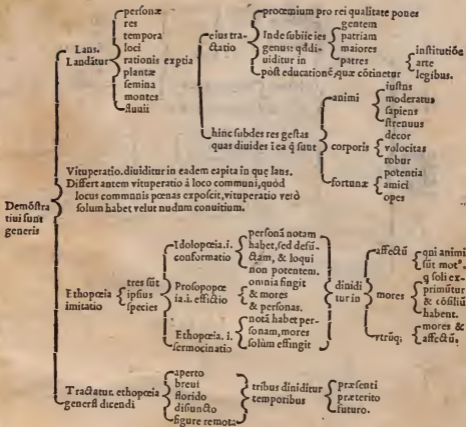 Demõstra
tiui sunt
generis
Laus.
Laudãtur
personæ
res
tempora
loci
rationis exptia
plantæ
semina
montes
fluuii
eius tra-
ctatio
prooemium pro rei qualitate pones
Inde subiicies
genus: qđ di-
uiditur in
gentem
patriam
maiores
patres
post educationẽ, quæ cõtinetur
institutiõe
arte
legibus.
hinc subdes res gestas
quas diuides i ea q̃ sunt
animi
iustus
moderatus
sapiens
strenuus
corporis
decor
velocitas
robur
fortunæ
potentia
amici
opes
Vituperatio. diuiditur in eadem capita in que laus.
Differt autem vituperatio à loco communi, quòd
locus communis pœnas exposcit, vituperatio verò
solum habet velut nudum conuitium.
Ethopœia
imitatio
tres sũt
ipsius
species
Idolopœia. i.
conformatio
personã notam
habet, sed defũ-
ctam, & loqui
non potentem.
Prosopopœ
ia. i. effictio
omnia fingit
& mores
& personas.
Ethopœia. i.
sermocinatio
notã habet per-
sonam, mores
solùm effingit
diuidi
tur in
affectũ
qui animi
sũt motꝰ.
mores
q̃ soli ex-
primũtur
& cõsiliũ
habent.
vtrũq;
mores &
affectũ.
Tractatur ethopœia
generi dicendi
aperto
breui
florido
disiuncto
figure remota
tribus diuiditur
temporibus
præsenti
præterito
futuro.